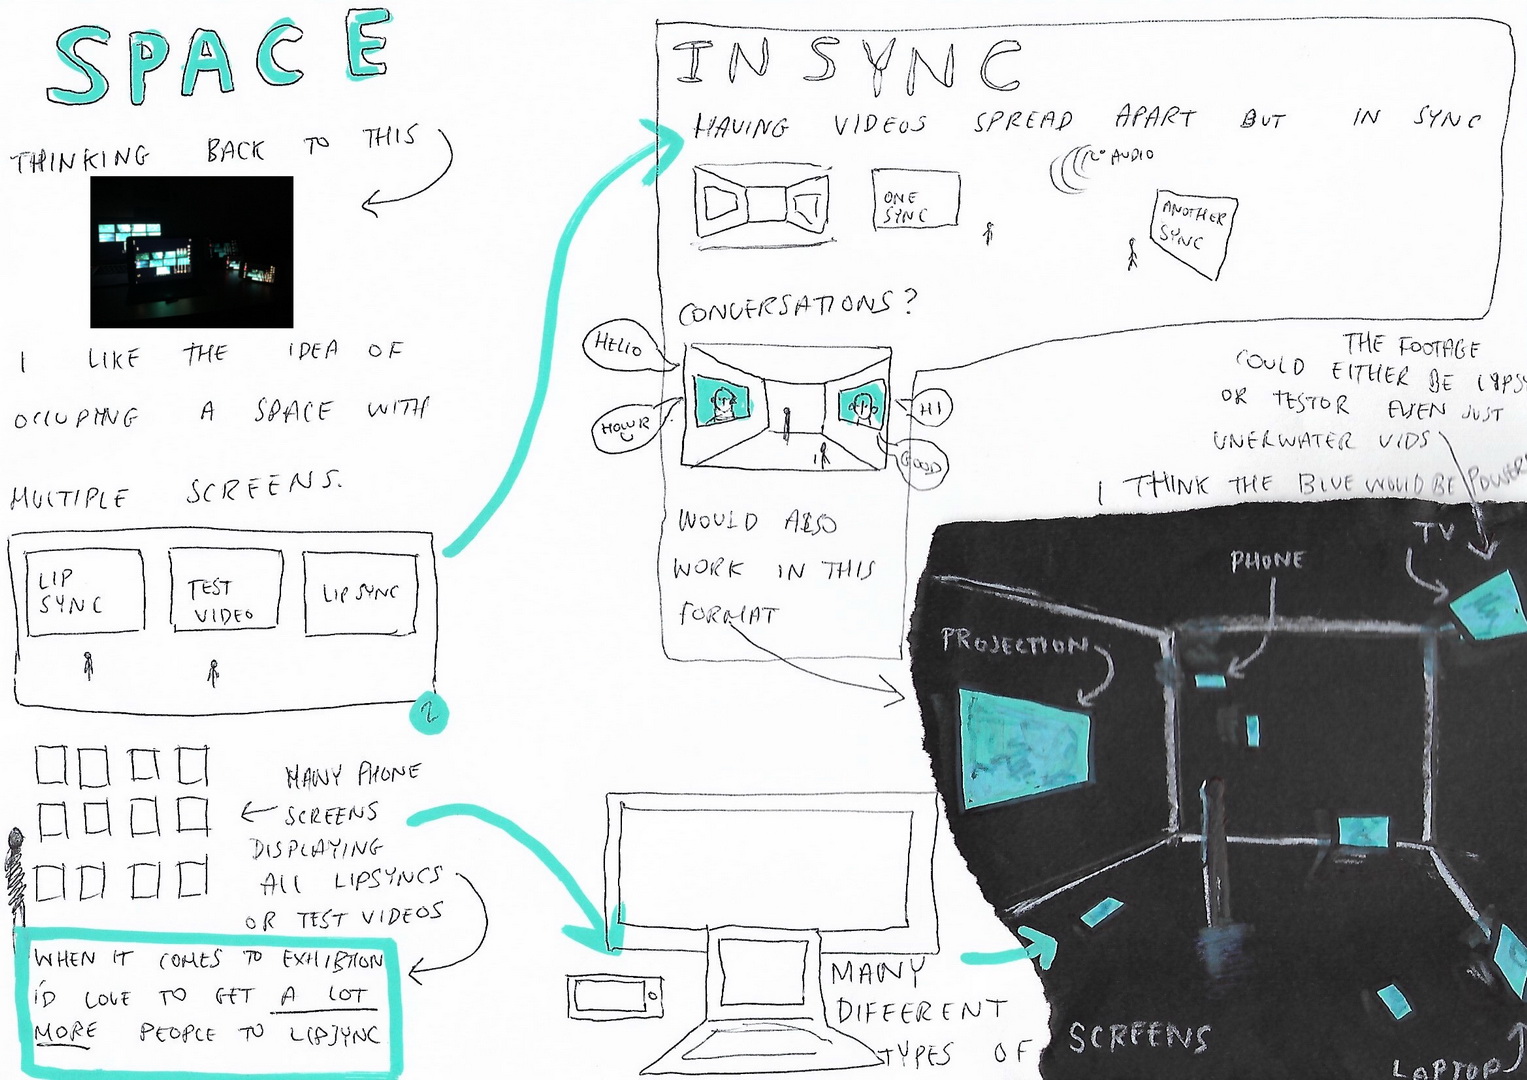 SPACE
THINKING BACK TO THIS
I LIKE THE IDEA OF
OCCUPING A SPACE WITH
MULTIPLE SCREENS.
LIP
SYNC
TEST
VIDEO
LIP SYNC
2
MANY PHONE
SCREENS
DISPLAYING
ALL LIPSYNCS
OR TEST VIDEOS
WHEN IT COMES TO EXHIBTION
I'D LOVE TO GET A LOT
MORE PEOPLE TO LIPSYNC
IN SYNC
HAVING VIDEOS SPREAD APART BUT IN SYNC
ONE
SYNC
AUDIO
ANOTHER
SYNC
CONVERSATIONS?
HELLO
HOW R
U
HI
GOOD
WOULD ALSO
WORK IN THIS
FORMAT
THE FOOTAGE
COULD EITHER BE LIPSY
OR TEST OR EVEN JUST
UNERWATER VIDS
I THINK THE BLUE WOULD BE POWER
TV
PHONE
PROJECTION
MANY
DIFFERENT
TYPES OF
SCREENS
LAPTOP